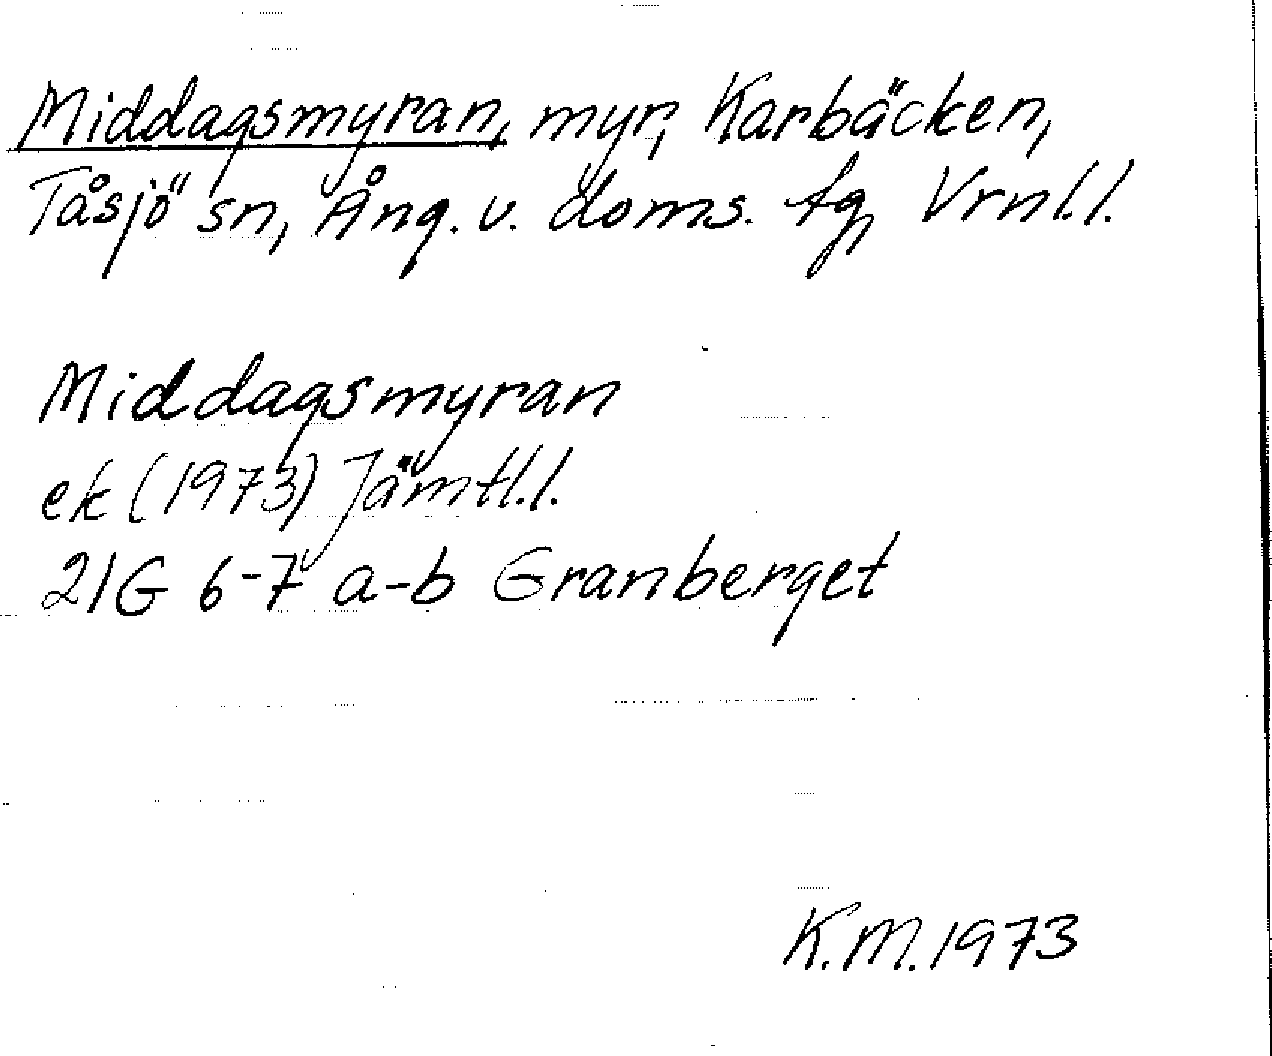 Middagsmyran, myr, Karbäcken,
Tåsjö sn, Ång. v. doms. tg, Vrnl.l.
Middagsmyran
ek (1973) Jämtl.l.
21G 6-7 a-b Granberget
K.M. 1973